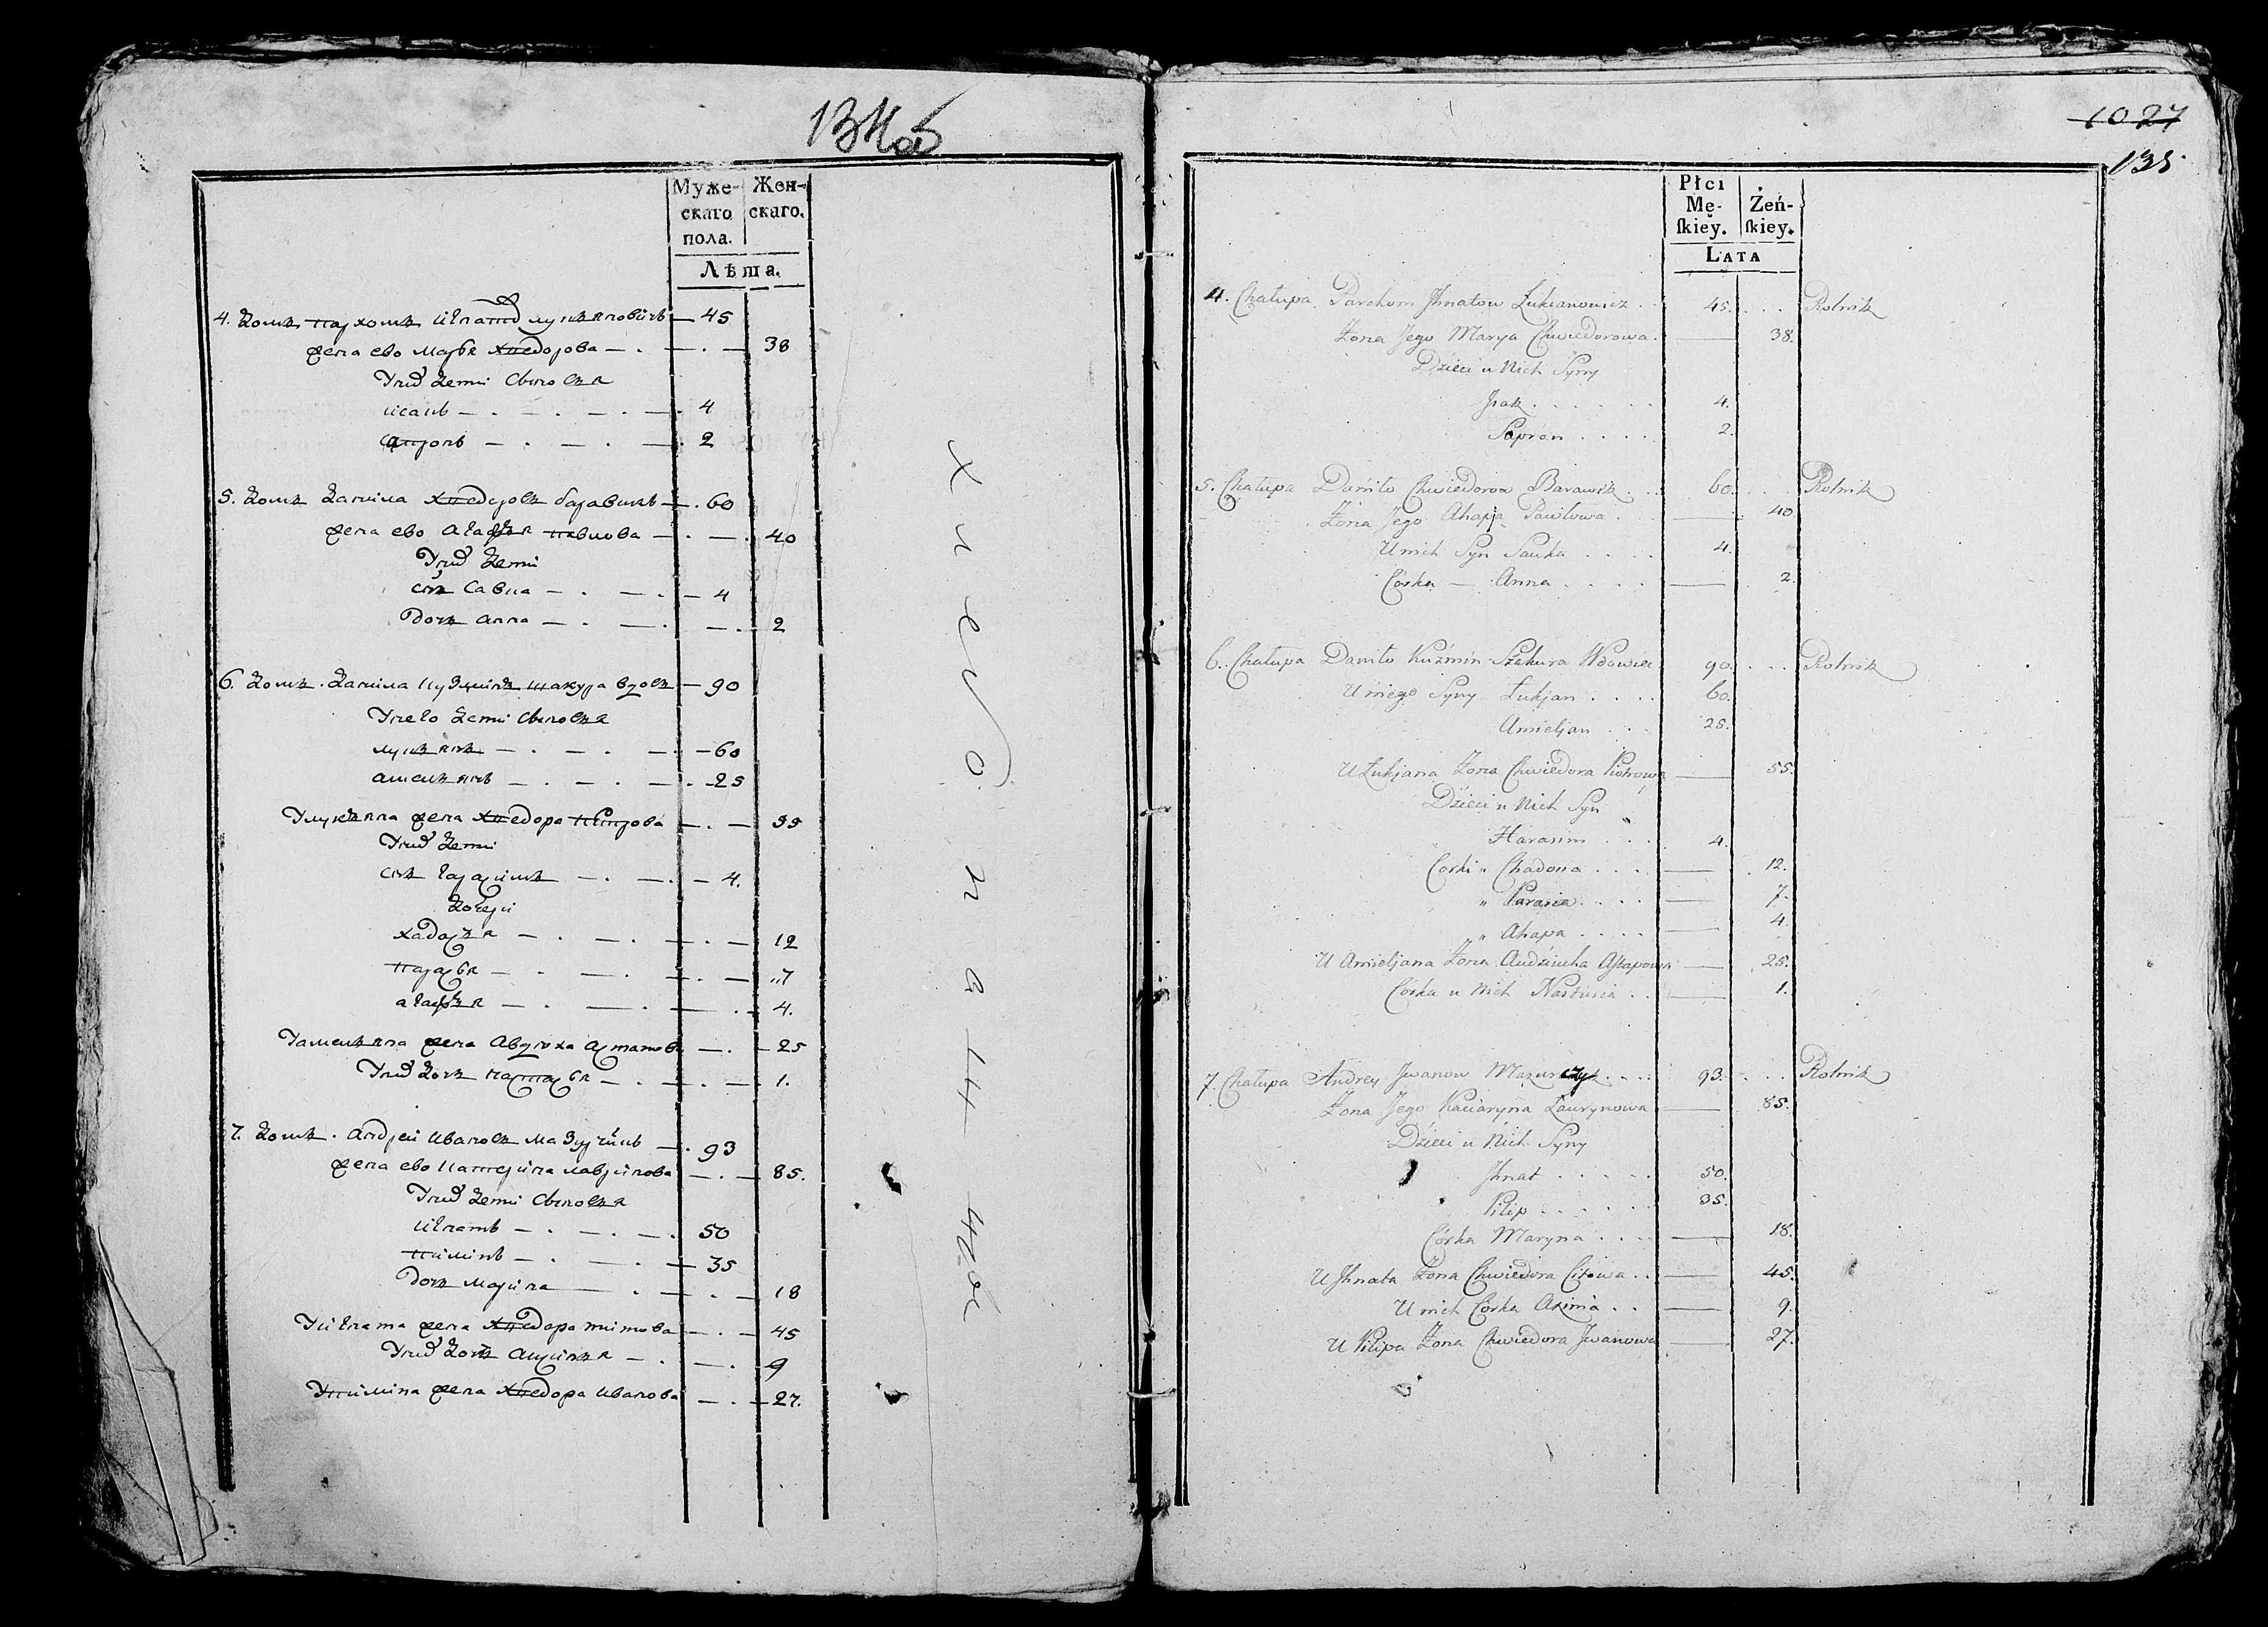 134об
Муже-
скаго
пола.
Жен-
скаго.
Лѣта.
4. Домъ пархомъ игнатов лукяновичъ — 45
жена ево марья хведорова — 38
У них дети сыновья
исакъ — 4
сапронъ — 2
5. Домъ данила хведоровъ боравикъ — 60
жена ево агафья павлова — 40
У них дети
сын савка — 4
дочъ анна — 2
6. Домъ данила кузминъ шакура вдовъ — 90
У него дети сыновья
лукянъ — 60
амельянъ — 25
У лукяна жена хведора пятрова — 55
У них дети
сын гарасимъ — 4.
дочери
хадосья — 12
парасья — 7
агафья — 4.
У амельяна жена авдюха астапова — 25
У них дочъ настасья — 1.
7. Домъ андрей ивановъ мазурчикъ — 93
жена ево катерина лавринова — 85.
У них дети сыновья
игнатъ — 50
пилипъ — 35
дочъ марина — 18
У игната жена хведора титова — 45
У них дочъ аксинья — 9
У пилипа жена хведора иванова — 27.
1027
135
Płci
Mę-
ſkiey.
Żeń-
ſkiey.
LATA
4. Chałupa Parchom Jhnatow Łukianowicz . . 45. . . . Rolnik
Żona Jego Marya Chwiedorowa. — 38.
Dzieci u Nich Syny
Jsak . . . . . 4.
Sapron . . . . 2.
5. Chałupa Daniło Chwiedorow Barawik . . . 60. . . . Rolnik
Żona Jego Ahapa Pawłowa . — 40
U nich Syn Sauka . . . . 4.
Córka — Anna . . . . — 2.
6. Chałupa Daniło Kuźmin Szakura Wdowiec 90. . . . Rolnik
U niego Syny Łukjan . . . . 60.
Amieljan . . . 25.
U Łukjana Żona Chwiedora Piotrowa — 55.
Dzieci u Nich Syn
Harasim . . . 4.
Corki „ Chadosia . . . . — 12.
„ Parasia . . . . — 7.
„ Ahapa . . . . — 4.
U Amieljana Żona Audziucha Astapowa — 25.
Córka u Nich Nastusia . . — 1.
7. Chałupa Andrey Jwanow Mazurczyk . . . 93. . . . Rolnik
Żona Jego Kaciaryna Łaurynowa — 85.
Dzieci u Nich Syny
Jhnat . . . . . 50.
Pilip . . . . . . 35.
Córka Maryna . . . . — 18.
U Jhnata Żona Chwiedora Citowa . . — 45.
U nich Córka Axinia . . — 9.
U Pilipa Żona Chwiedora Jwanowa — 27.